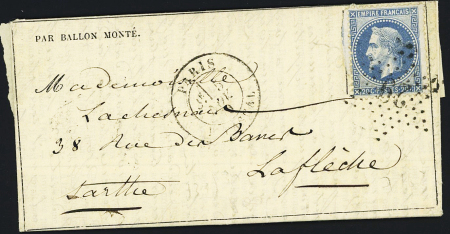 PAR BALLON MONTÉ.
EMPIRE FRANÇAIS
PARIS
Mademoiselle
Lachesnais
38 Rue des Bancs
Laflèche
Sarthe